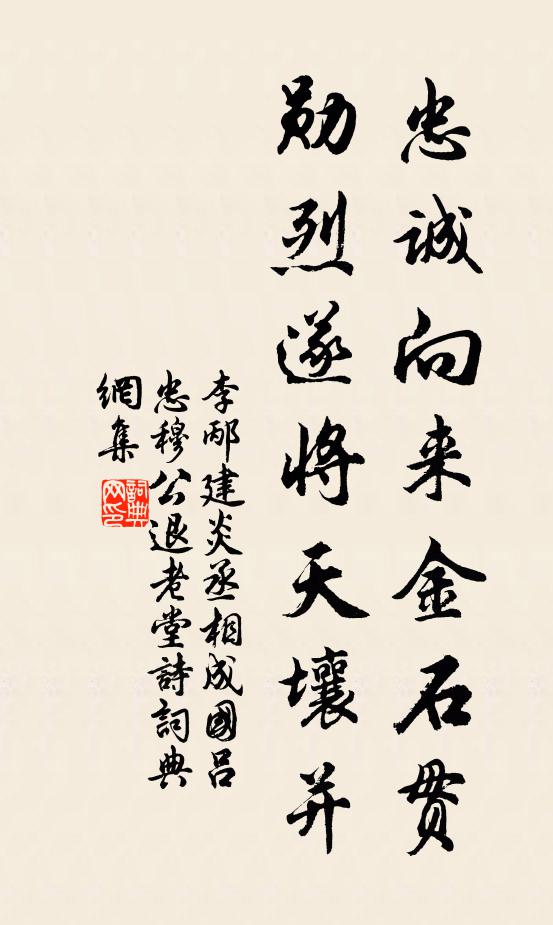 忠誠向来金石貫
勋烈遂将天壤并
李邴建炎丞相成國吕
忠穆公退老堂詩詞典
網集
詞典网印